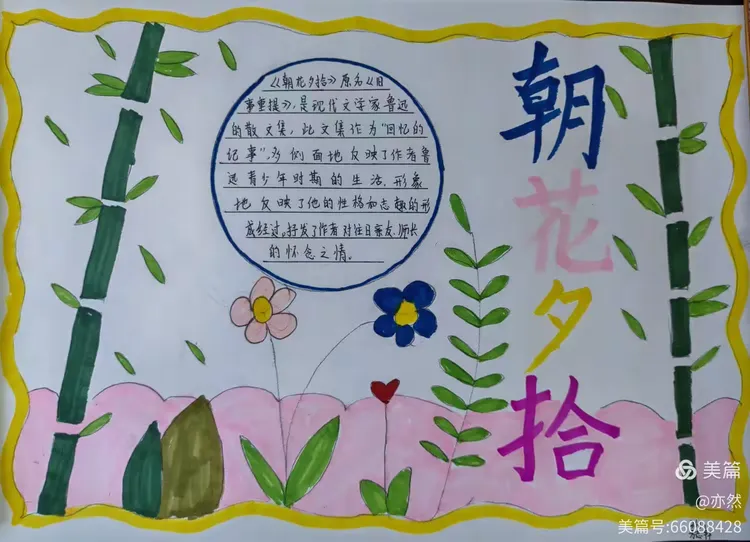 《朝花夕拾》原名《旧
事重提》,是现代文学家鲁迅
的散文集,此文集作为"回忆的
记事",多侧面地反映了作者鲁
迅青少年时期的生活,形象
地反映了他的性格和志趣的形
成经过。抒发了作者对往日亲友、师长
的怀念之情。
朝
花
夕
拾
美篇
@亦然
美篇号:66088428